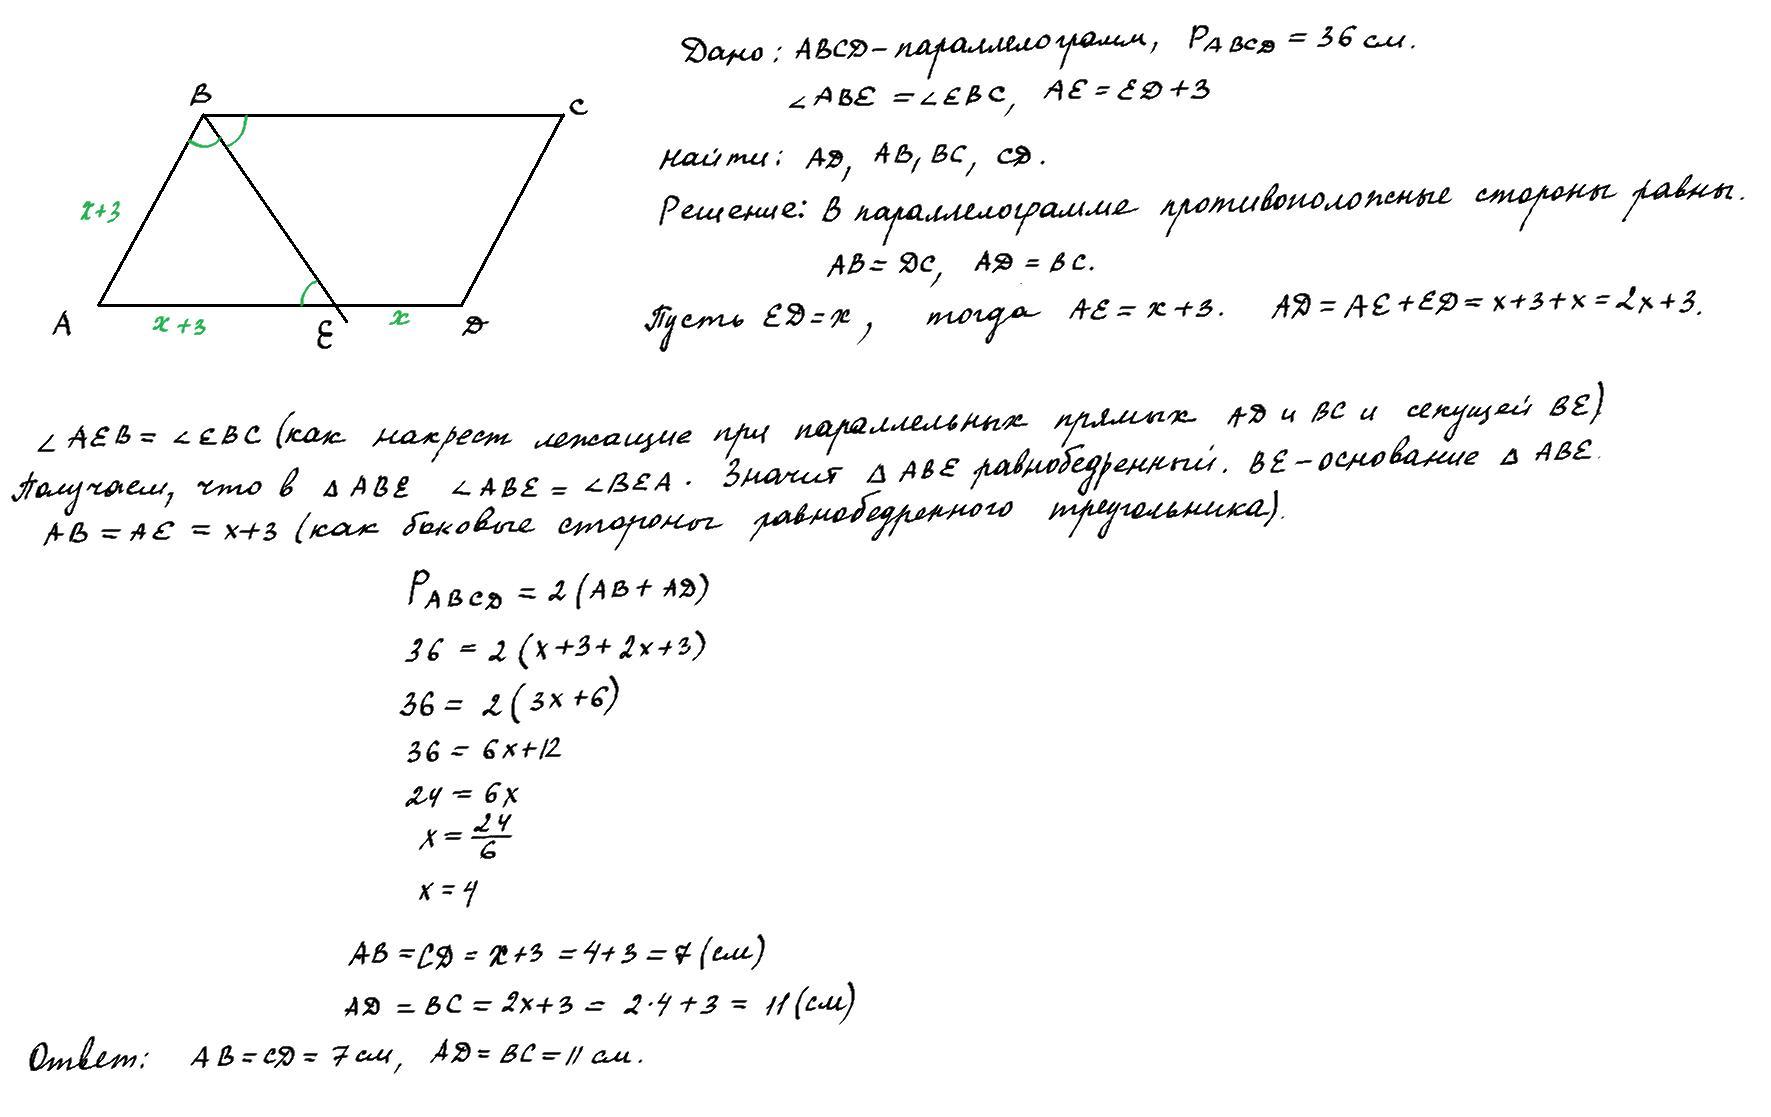 Дано: ABCD – параллелограмм, P_ABCD = 36 см.
∠ABE = ∠EBC, AE = ED + 3
Найти: AD, AB, BC, CD.
Решение: В параллелограмме противоположные стороны равны.
AB = DC, AD = BC.
Пусть ED = x, тогда AE = x + 3. AD = AE + ED = x + 3 + x = 2x + 3.
B
C
x+3
A
x+3
E
x
D
∠AEB = ∠EBC (как накрест лежащие при параллельных прямых AD и BC и секущей BE)
Получаем, что в △ABE ∠ABE = ∠BEA. Значит △ABE равнобедренный. BE – основание △ABE.
AB = AE = x+3 (как боковые стороны равнобедренного треугольника).
P_ABCD = 2(AB + AD)
36 = 2(x+3+2x+3)
36 = 2(3x+6)
36 = 6x+12
24 = 6x
x = 24/6
x = 4
AB = CD = x+3 = 4+3 = 7 (см)
AD = BC = 2x+3 = 2·4+3 = 11 (см)
Ответ: AB = CD = 7 см, AD = BC = 11 см.